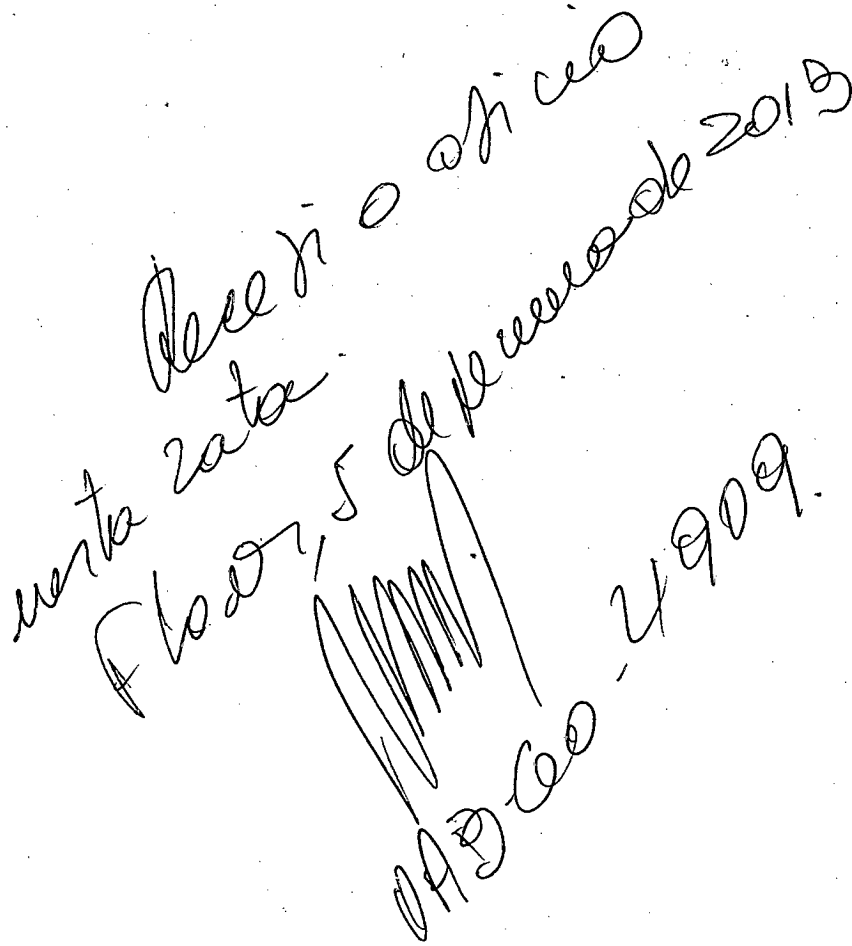 Recebi o oficio
nesta data.
5 de fevereiro de 2013
OAB GO - 4909.